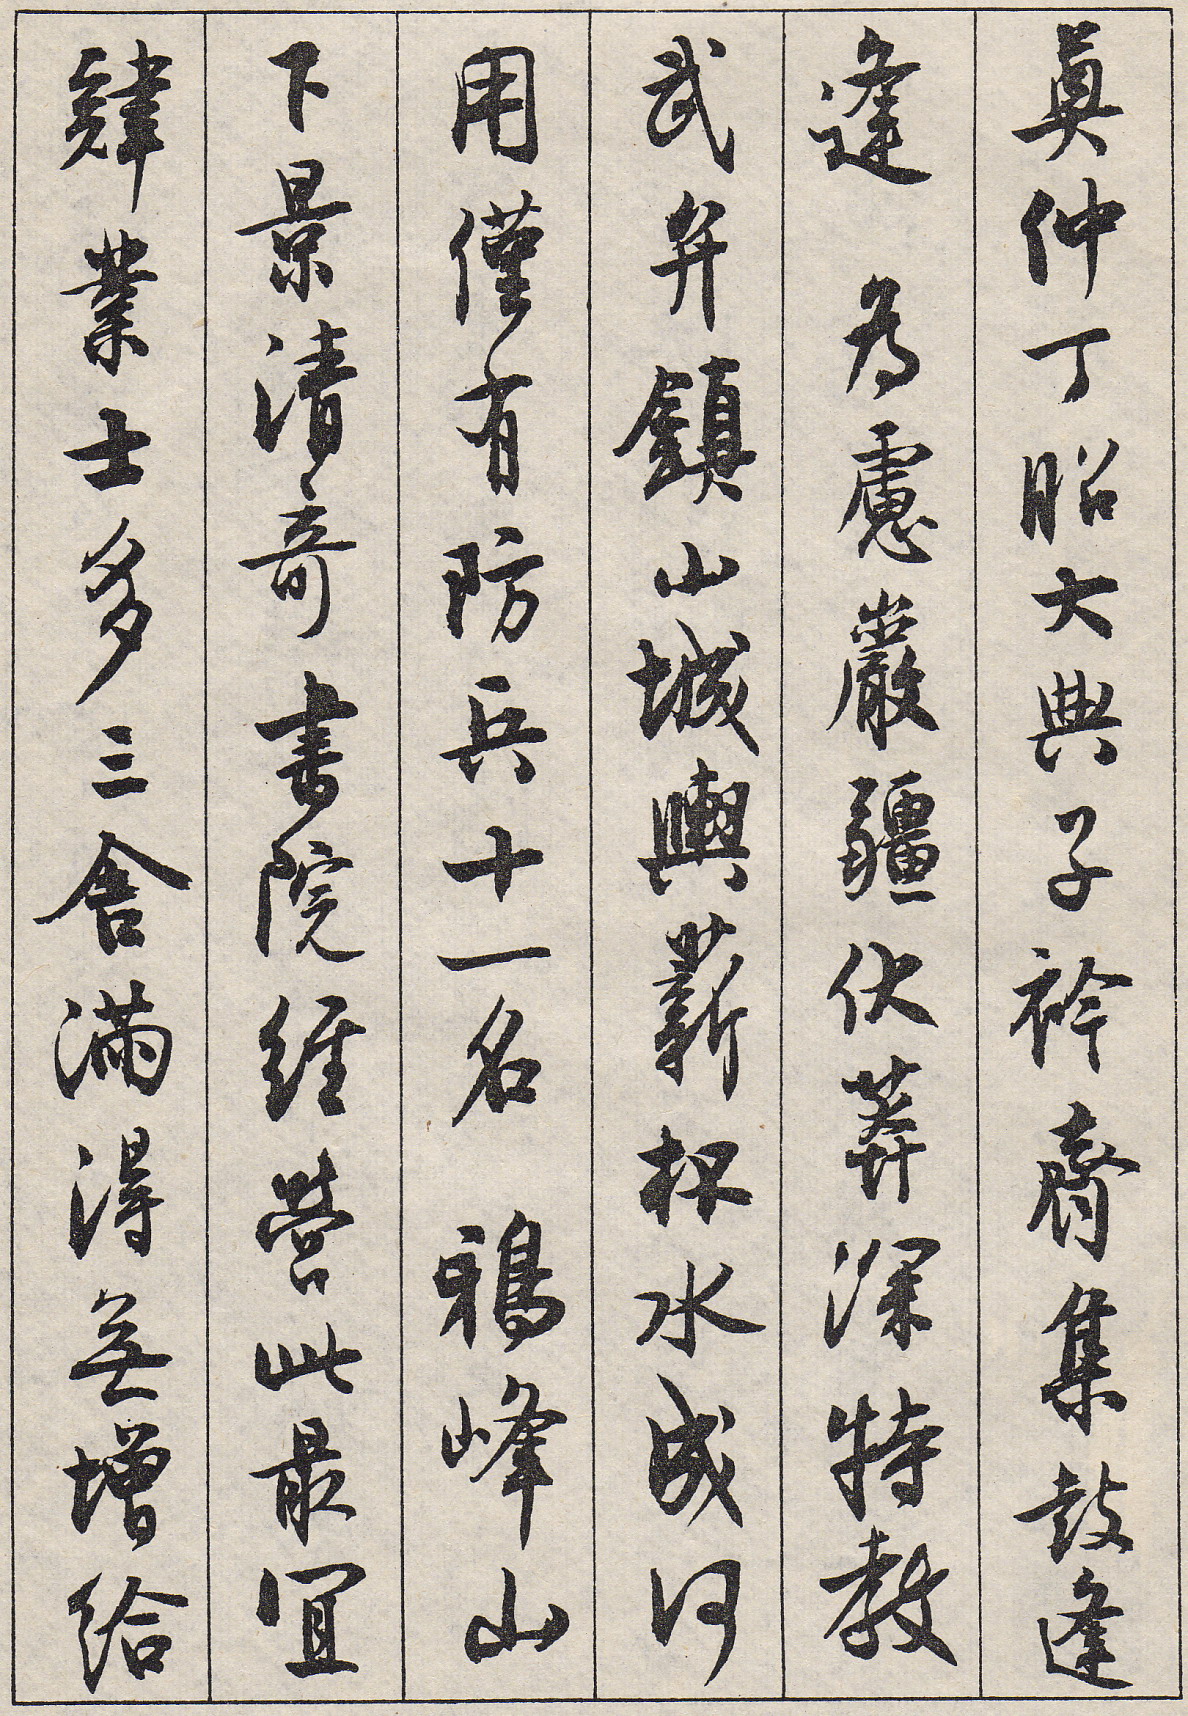 真仲丁昭大典子衿齊集鼓逢
逢　為慮巖疆伏莽深特教
武弁鎮山城輿薪杯水成何
用僅有防兵十一名　鴉峰山
下景清奇書院經營此最宜
肄業士多三舍滿得無增給